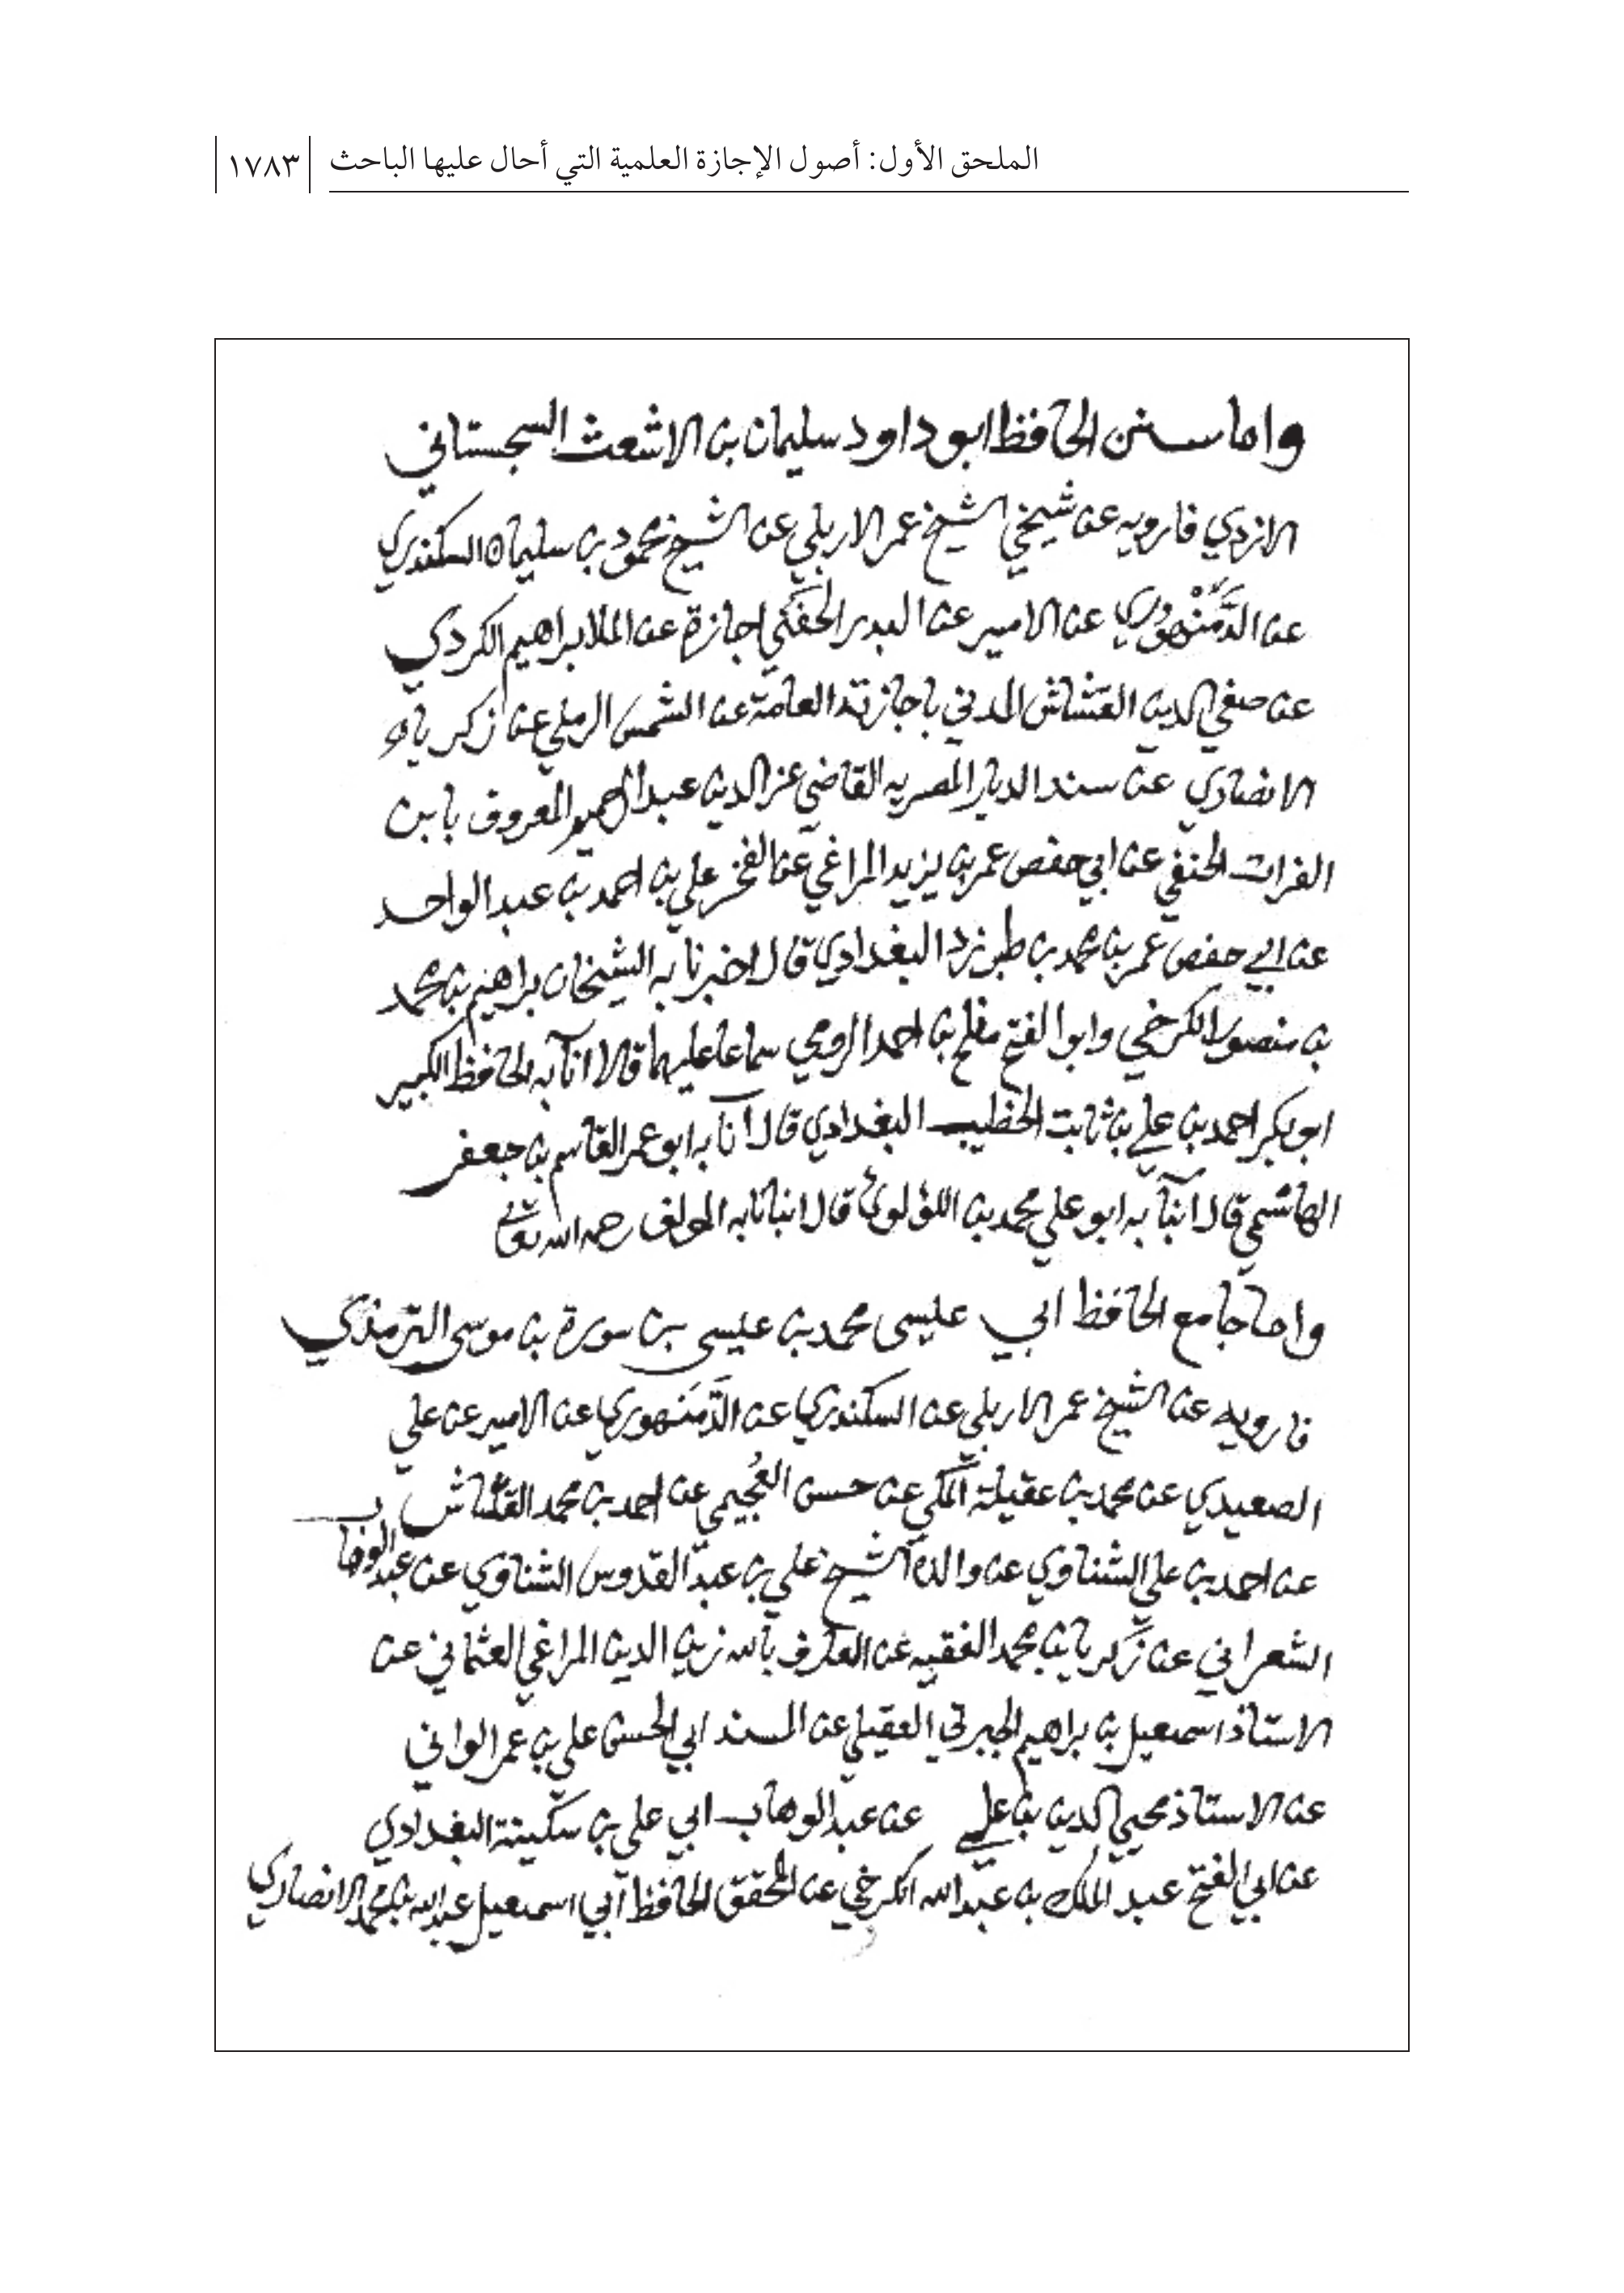 الملحق الأول: أصول الإجازة العلمية التي أحال عليها الباحث ١٧٨٣
واما سنن الحافظ ابو داود سليمان بن الاشعث السجستاني
الازدي فارويه عن شيخي الشيخ عمر الاربلي عن الشيخ محمود بن سليمان السكندري
عن الدَّمَنْهوري عن الامير عن البدر الحفني اجازة عن الملا براهيم الكردي
عن صفي الدين القشاش المدني باجازته العامة عن الشمس الرملي عن زكرياء
الانصاري عن سند الديار المصريه القاضي عز الدين عبد الرحيم المعروف بابن
الفرات الحنفي عن ابي حفص عمر بن يزيد المراغي عن الفخر علي بن احمد بن عبد الواحد
عن ابي حفص عمر بن محمد بن طبرزد البغدادي قال اخبرنا به الشيخان براهيم بن محمد
بن منصور الكرخي وابو الفتح مفلح بن احمد الرومي سماعا عليهما قالا انآ به الحافظ الكبير
ابو بكر احمد بن علي بن ثابت الخطيب البغدادي قال آنا به ابو عمر القاسم بن جعفر
الهاشمي قال انبآ به ابو علي محمد بن اللؤلوئ قال انبانا به المولف رحمه الله تعالى
واما جامع الحافظ ابي عليسى محمد بن عيسى بن سورة بن موسى الترمذي
فارويه عن الشيخ عمر الاربلي عن السكندري عن الدَّمَنْهوري عن الامير عن علي
الصعيدي عن محمد بن عقيلة المكي عن حسن العُجيمي عن احمد بن محمد القشاش
عن احمد بن علي الشناوي عن والده الشيخ علي بن عبد القدوس الشناوي عن عبد الوهاب
الشعراني عن زكريا بن محمد الفقيه عن العارف بالله زين الدين المراغي العثماني عن
الاستاذ اسمعيل بن براهيم الجبرتي العقيلي عن المسند ابي الحسن علي بن عمر الواني
عن الاستاذ محيي الدين بن علي عن عبد الوهاب ابي علي بن سكينة البغدادي
عن ابي الفتح عبد الملك بن عبد الله الكرخي عن المحقق الحافظ ابي اسمعيل عبد الله بن محمد الانصاري